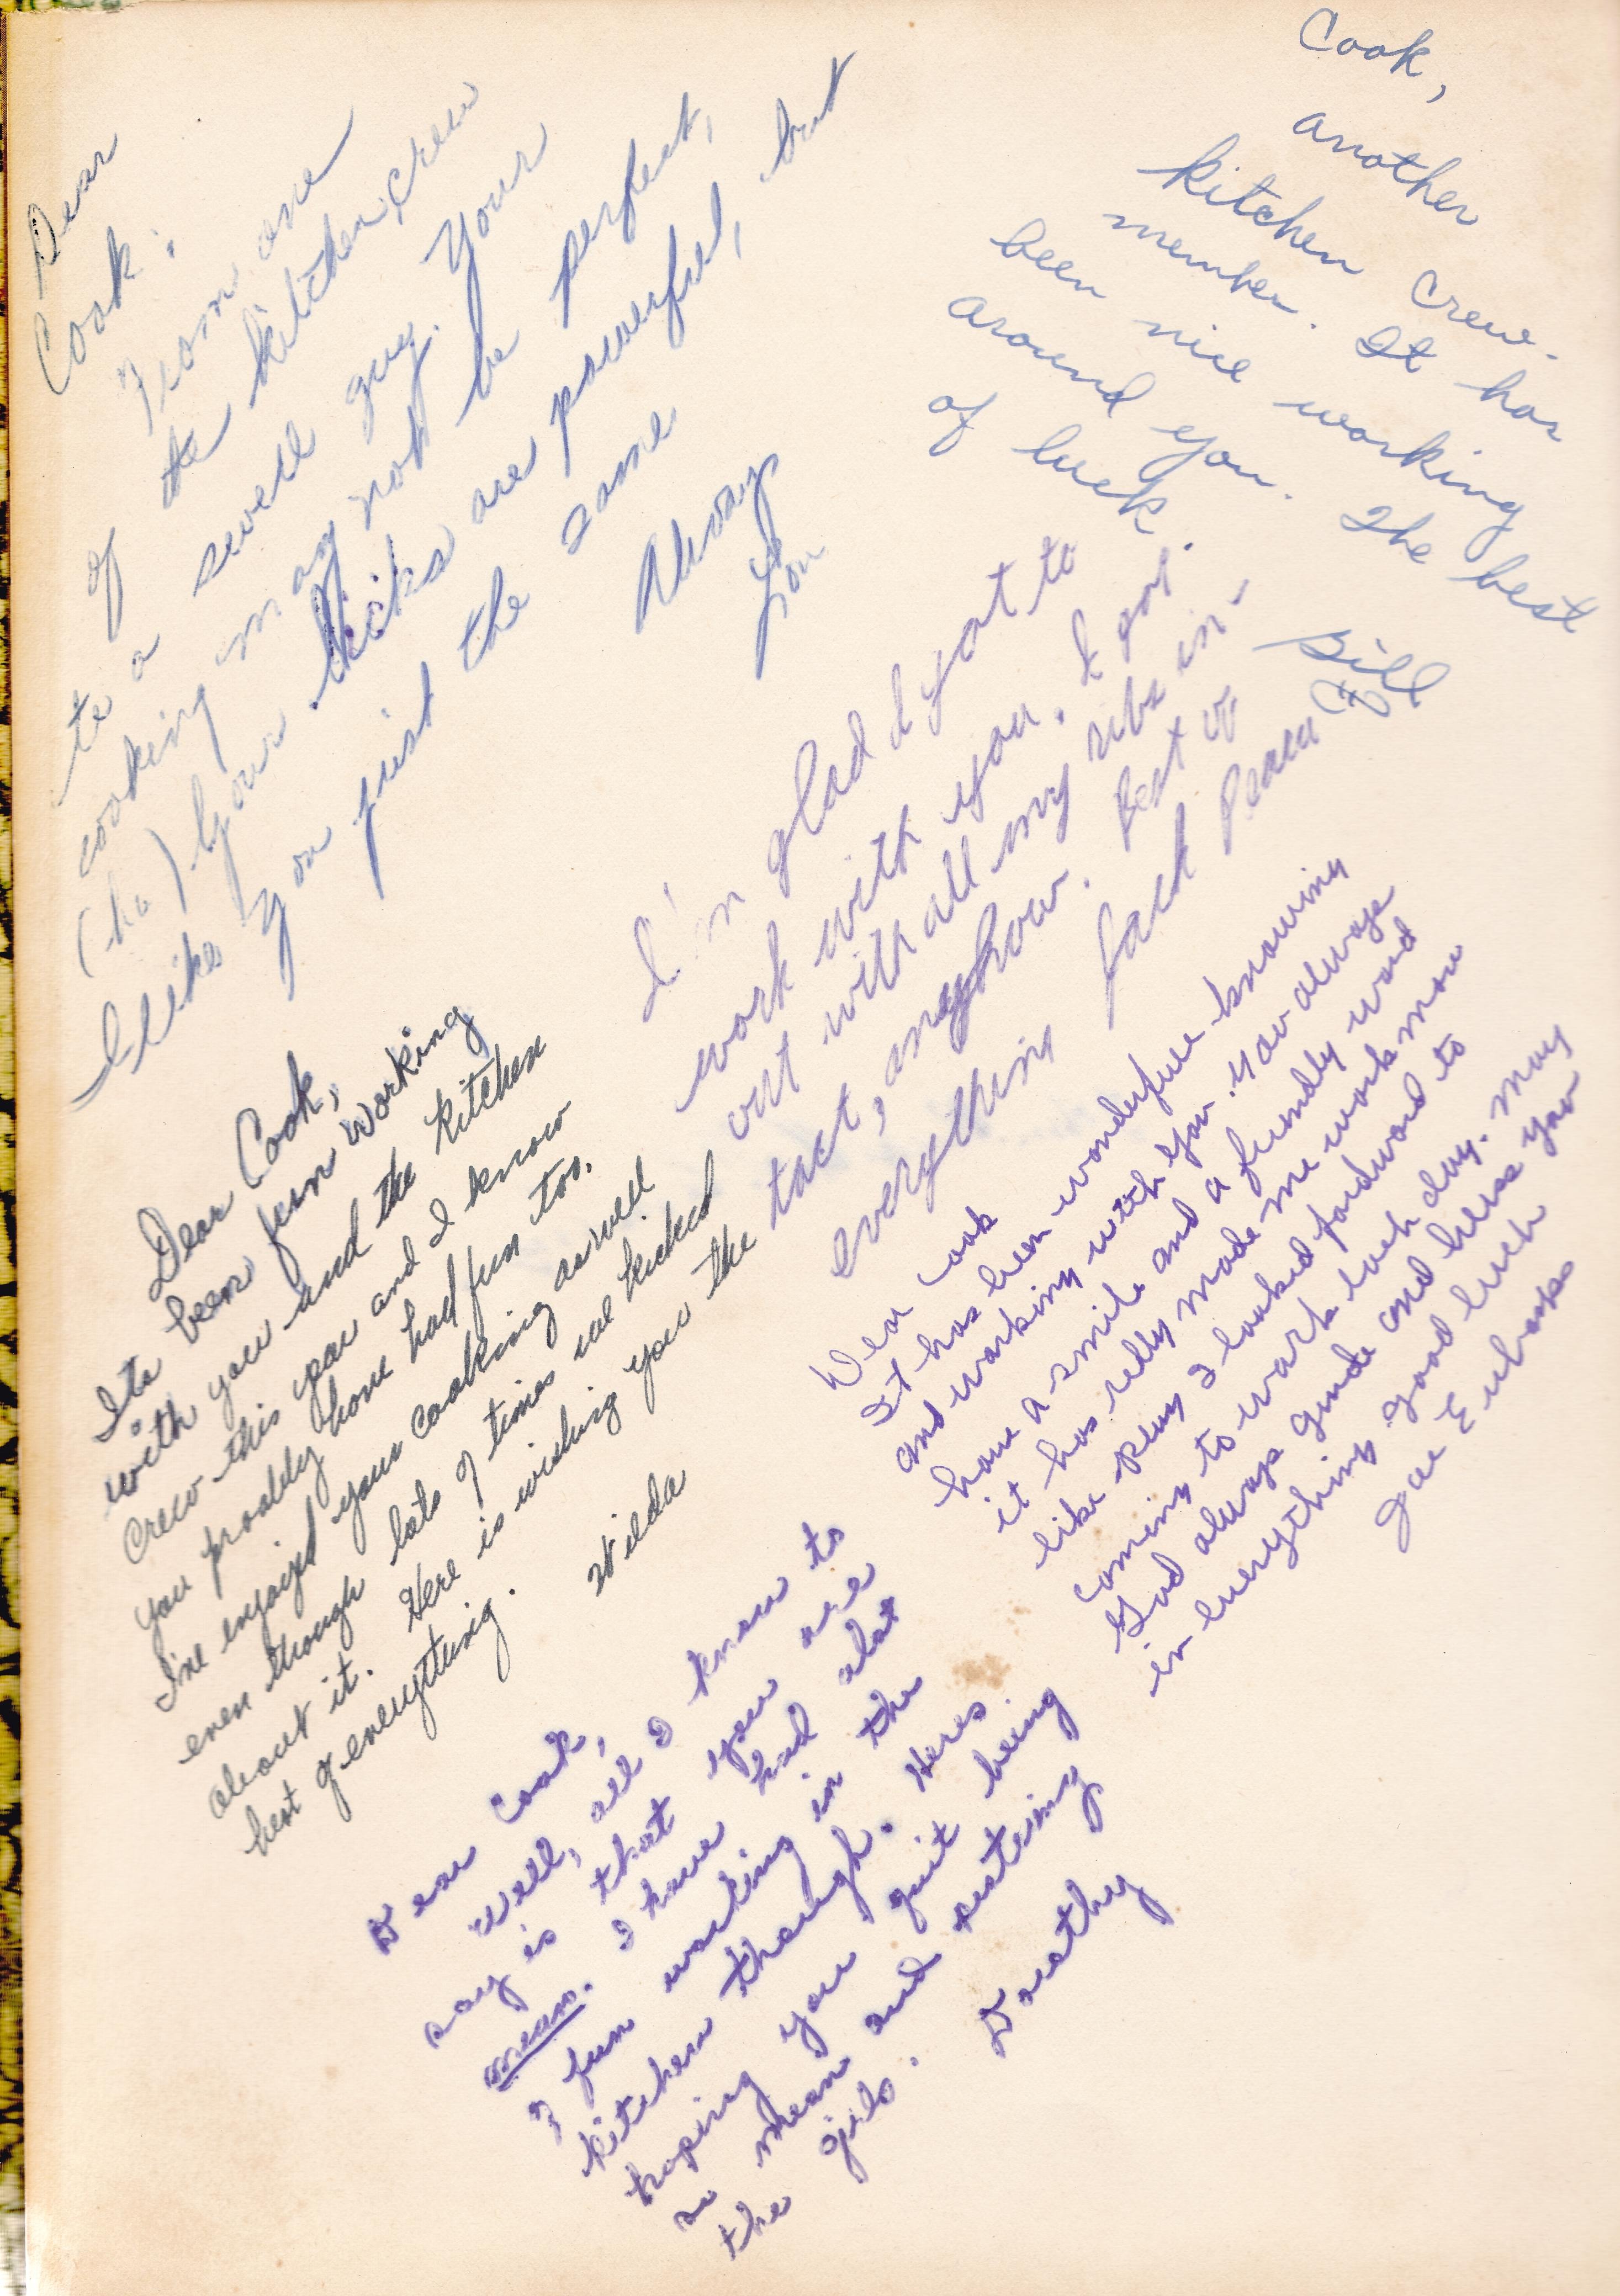 Dear
Cook:
From one
of the kitchen crew
to a swell guy. Your
cooking may not be perfect,
(ha) Your kicks are powerful, but
I like you just the same
Always
Lou
Cook,
another
kitchen crew
member. It has
been nice working
around you. The best
of luck.
Bill
I'm glad I got to
work with you. I got
out with all my ribs in-
tact, anyhow. Best of
everything
Jack
Dear Cook,
Its been fun working
with you and the kitchen
crew this year and I know
you probly have had fun too.
Ive enjoyed your cooking aswell
even though lots of times we kicked
about it. Here is wishing you the
best of everything.
Hilda
Dear Cook
It has been wonderfull knowing
and working with you. You always
have a smile and a friendly word
it has relly made me work more
like play I looked fordward to
coming to work each day. May
God always guide and bless you
in everything. good luck
Sue Eubanks
Dear Cook,
Well, all I know to
say is that you are
mean. I have had alot
of fun working in the
kitchen though. Heres
hoping you quit being
so mean and pestering
the girls.
Dorothy